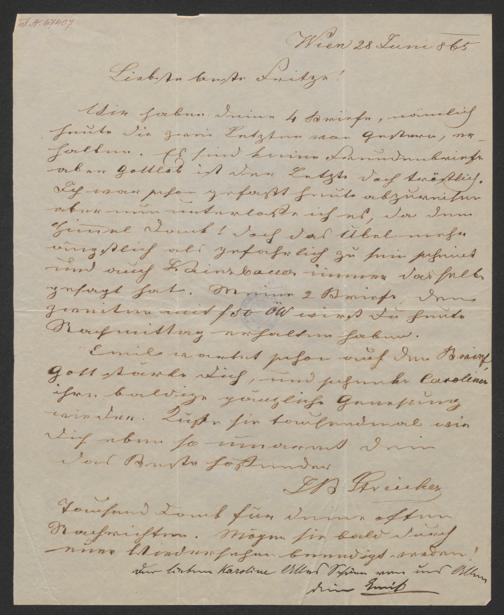 I.N. 67407
Wien 28 Juni 865
Liebste beste Fritze!
Wir haben deine 4 Briefe, nämlich
heute die zwei Letzten von Gestern, er-
halten. Es sind keine Freudenbriefe
aber Gottlob ist der Letzte doch tröstlich.
Ich war schon gefaßt heute abzureisen
aber nun unterlasse ich es, da dem
Himel Dank! doch das Übel mehr
ängstlich als gefährlich zu sein scheint
und auch immer dasselbe
gesagt hat. Meine 2 Briefe, den
zweiten mit f 50 ÖW wirst du heute
Nachmittag erhalten haben.
Emil wartet schon auf den Brief,
Gott stärke Dich, und schenke Carolinen
ihre baldige gänzliche Genesung
wieder. Küße sie tausendmal wie
Dich eben so umarmt dein
das Beste hoffender
Tausend Dank für deine öftern
Nachrichten. Mögen sie bald durch
euer Wiedersehen beendigt werden!
Der lieben Karoline Alles Schöne von uns Allen
dein Emil